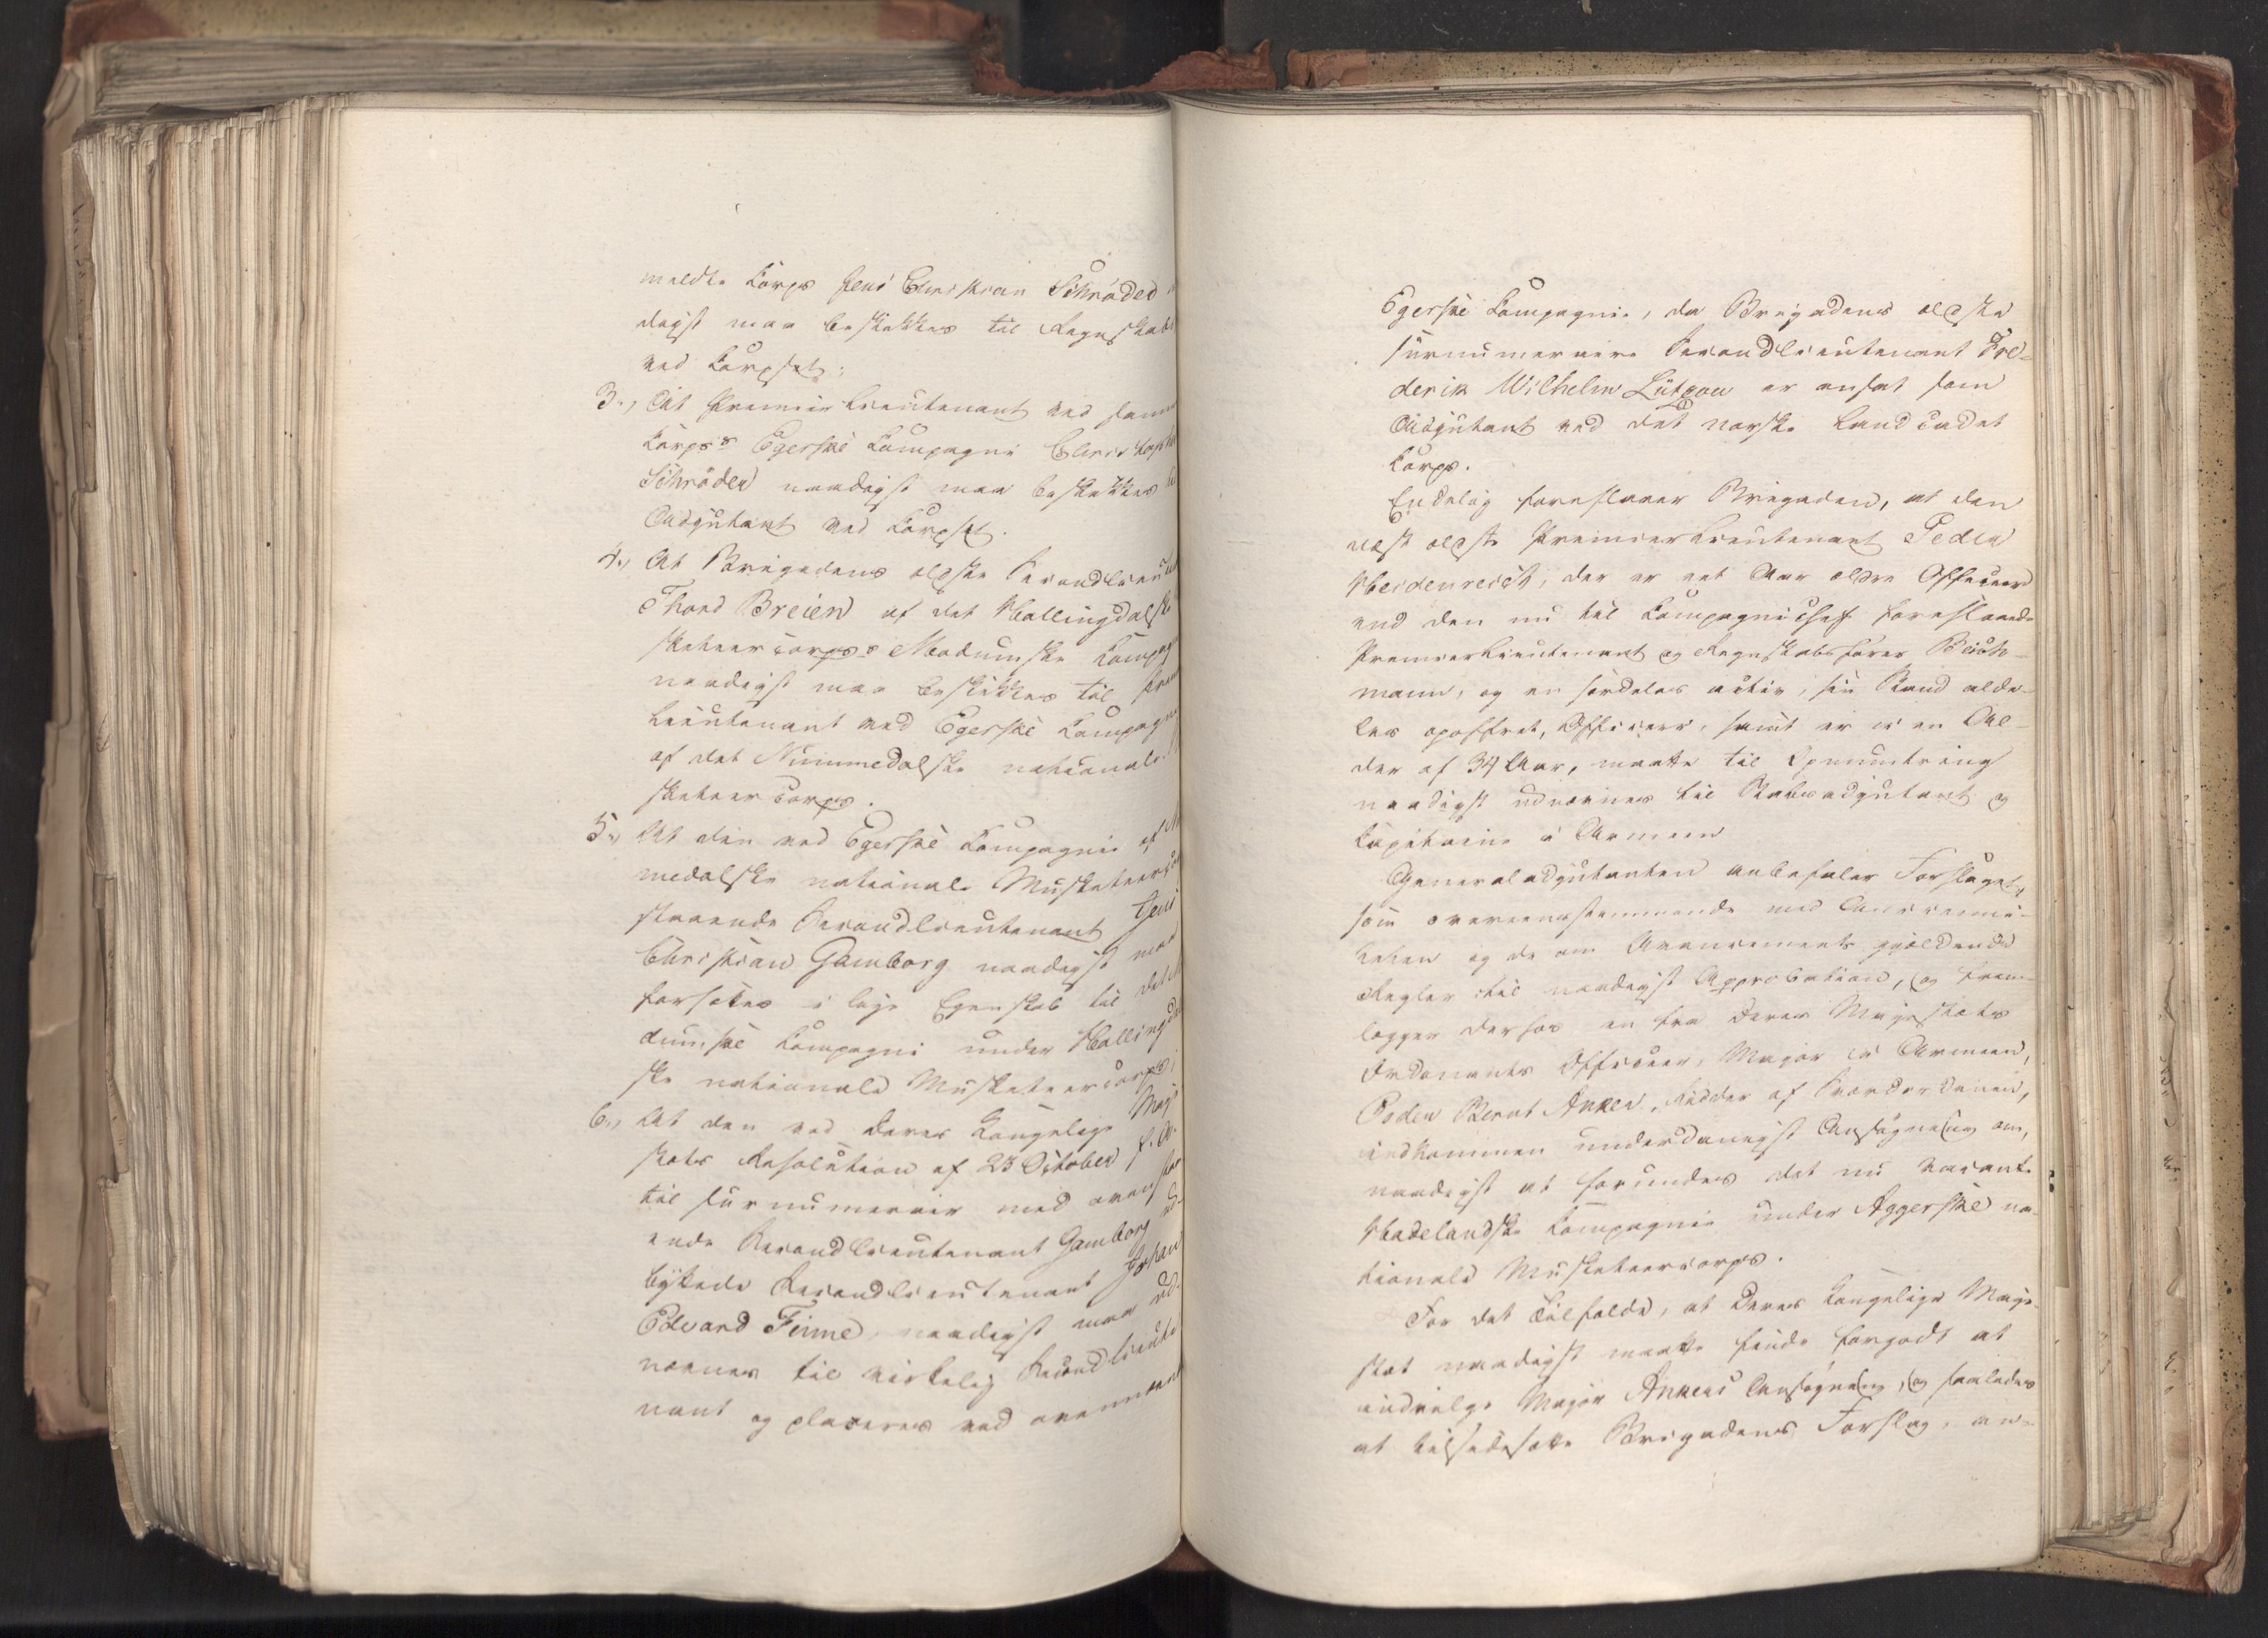 meldte Corps Jens Christian Schrøder
digst maa beskikkes til Regnskabs
ved Corpset;
3., At Premierlieutenant ved samme
Corps's Egerske Compagnie Christopher
Schrøder naadigst maa beskikkes til
Adjutant ved Corpset.
4., At Brigadens ældste Secondlieuten
Thord Breien af det Hallingdalske
sketeercorps's Modumske Compagnie
naadigst maa beskikkes til Premier
lieutenant ved Egerske Compagnie
af det Nummedalske nationale
sketeercorps.
5., At den ved Egerske Compagnie af
medalske nationale Musketeercor
staaende Secondlieutenant Jens
Christian Gamborg naadigst maa
forsættes i lige Egenskab til det M
dumske Compagni under Hallingdal
ske nationale Musketeercorps;
6., At den ved Deres Kongelige Maje
stæts Resolution af 23 October f. A.
til surnumerair med ovenstaa
ende Secondlieutenant Gamborg ud-
byttede Secondlieutenant Johan
Edvard Finne, naadigst maa ud-
nævnes til virkelig Secondlieute
nant og placeres ved ovennævnte
Egerske Compagnie, da Brigadens ældste
surnumeraire Secondlieutenant Fre-
derik Wilhelm Lützow er ansat som
Adjutant ved det norske Landcadet
Corps.
Endelig foreslaaer Brigaden, at den
næst ældste Premierlieutenant Peder
Heidenreich, der er eet Aar ældre Officeer
end den nu til Compagniechef foreslaaede
Premierlieutenant og Regnskabsfører Bich-
mann, og en særdeles activ, sin Stand alde-
les opoffret, Officeer, samt er i en Al-
der af 34 Aar, maatte til Opmuntring
naadigst udnævnes til Stabsadjutant og
Capitaine i Armeen
Generaladjutanten anbefaler Forslaget,
som overeensstemmende med Anciennite-
teten og de om Avancements gjældende
Regler til naadigst Approbation, og frem-
lægger derhos en fra Deres Majestæts
Ordonants Officeer, Major i Armeen,
Peder Bernt Anker, Ridder af Sværdordenen,
indkommen underdanigst Ansøgning om,
naadigst at forundes det nu vacante
Hadelandske Compagnie under Aggerske na-
tionale Musketeercorps.
For det Tilfælde, at Deres Kongelige Maje-
stæt naadigst maatte finde forgodt at
indvilge Major Ankers Ansøgning, og saaledes
at tilsidesætte Brigadens Forslag, an-